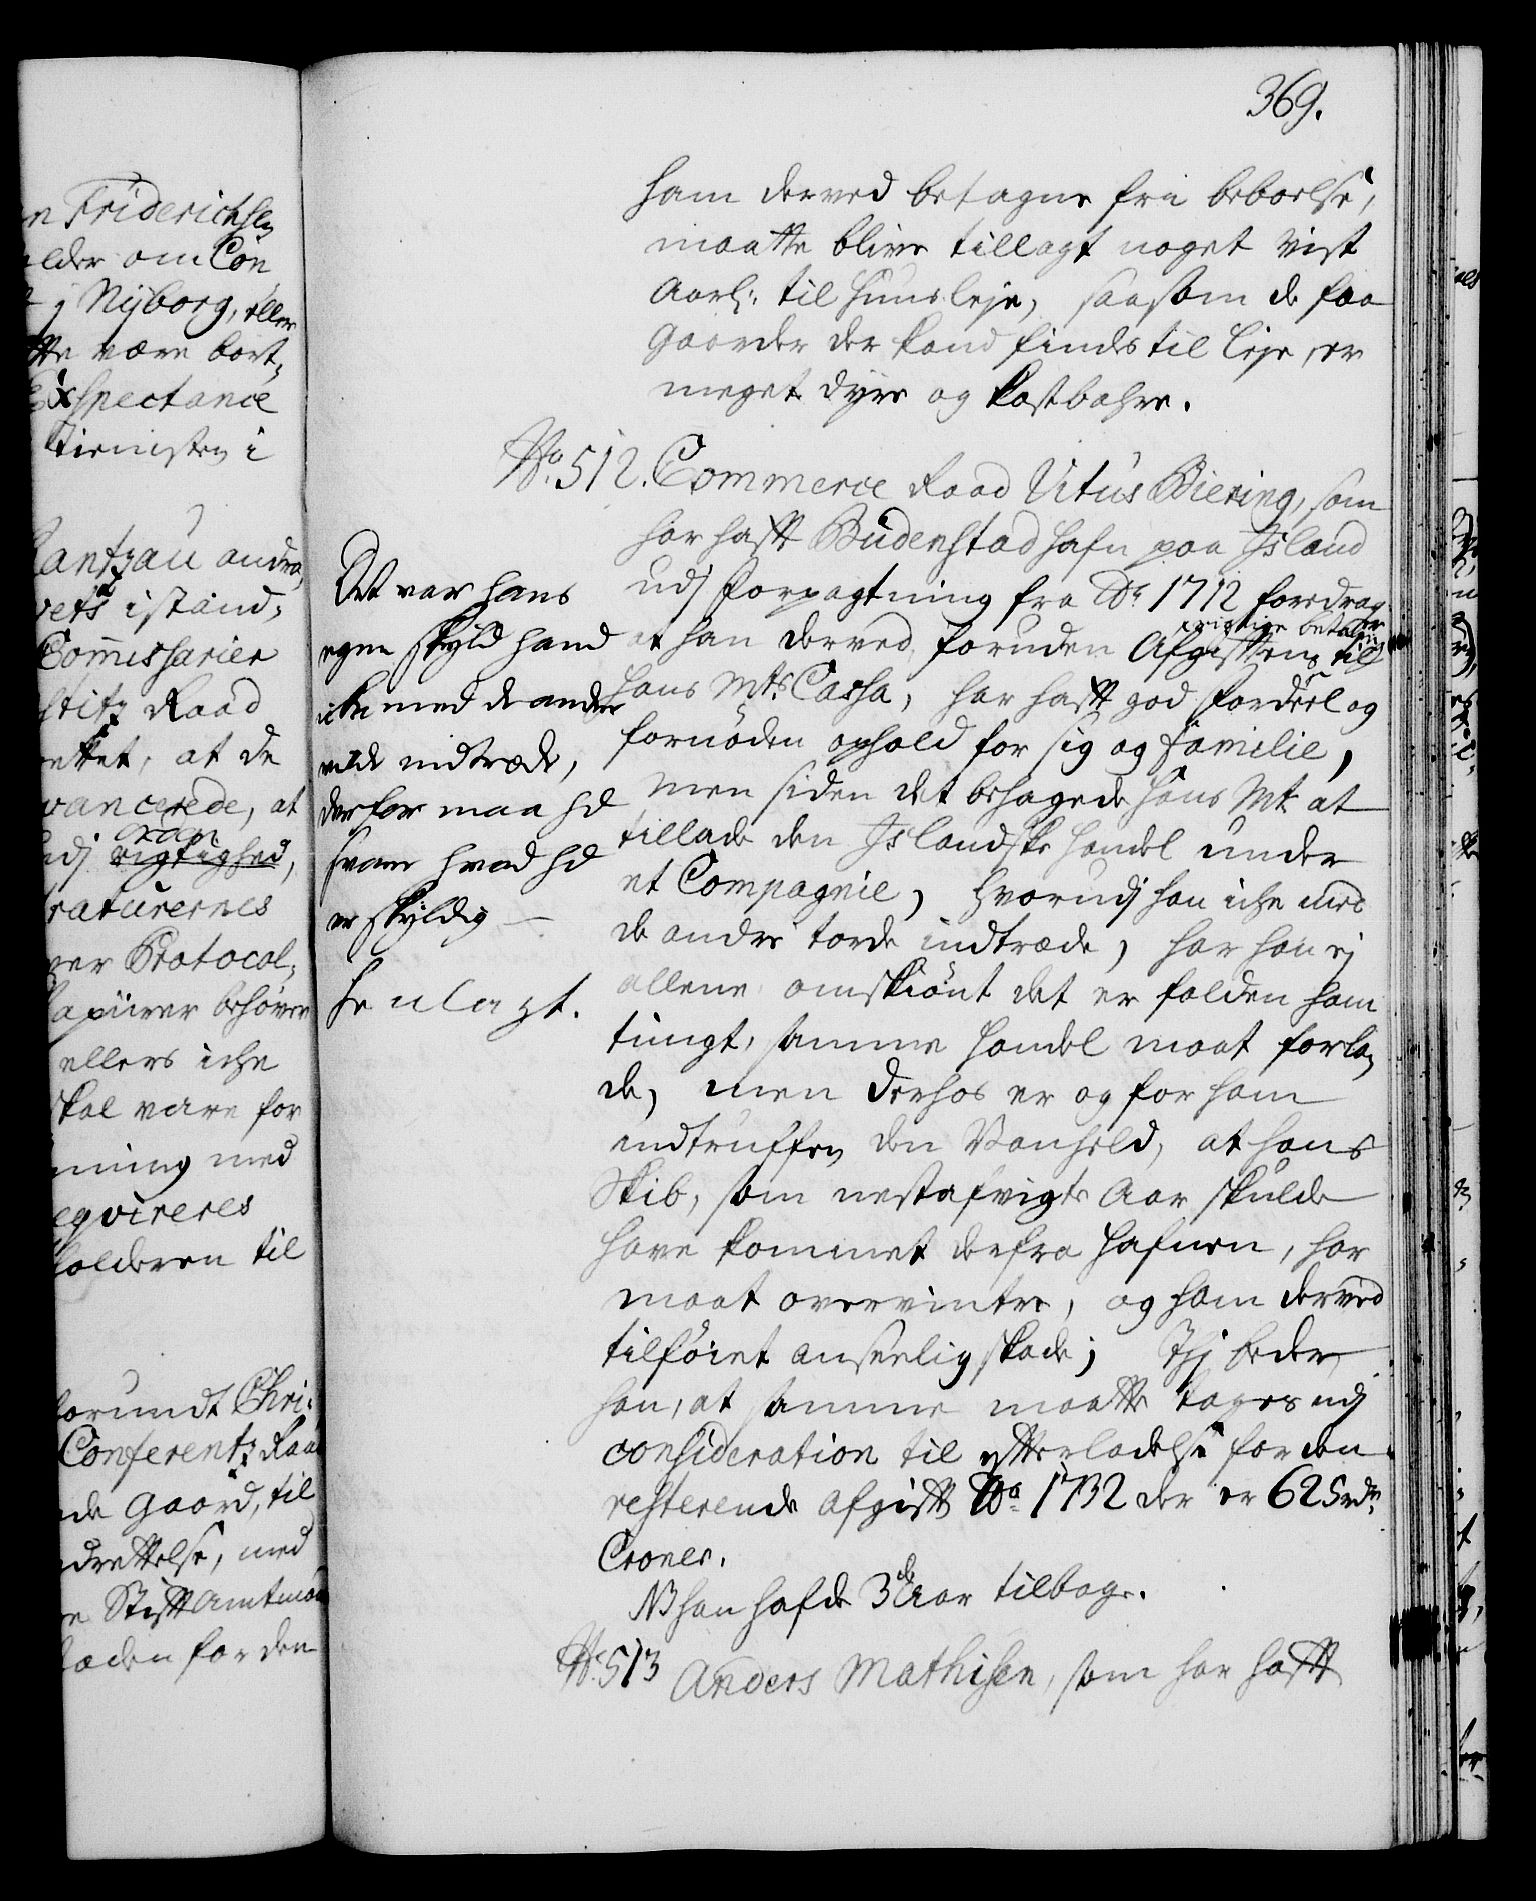 369.
ham derved betagne fri beboelse,
maatte blive tillagt noget vist
Aarl: til Huusleje, saasom de faa
Gaarder der kand findes til Leje, er
meget dyre og kostbahre.
No. 512. Commerce Raad Vitus Biering, som
har hafft Budenstad Hafn paa Island
udj forpagtning fra Ao 1712 foredrager
at han derved, foruden Afgifftens rigtige betaling til
Hans Mts Cassa, har hafft god fordeel og
fornøden ophold for sig og familie,
men siden det behagede Hans Mt at
tillade den Islandske Handel under
et Compagnie, hvorudj han iche med
de andre torde indtræde, har han ej
allene, omskiønt det er falden ham
tungt, samme Handel maat forla,
de, men derhos er og for ham
indtruffen den Vanheld, at hans
Skib, som nestafvigte Aar skulde
have kommet derfra Hafnen, har
maat overvintre, og ham derved
tilføiet anseelig skade; Thj beder
han, at samme maatte tages udj
consideration til efterladelse for den
resterende afgifft Ao 1732 der er 625 rdr
Croner.
NB han hafde 3de Aar tilbage.
No. 513 Anders Mathisen, som har hafft
Det var hans
egen skyld hand
iche med de andre
vilde indtræde,
derfor maa hd
svare hvad hd
er skyldig
henlagt.
n Friderichsen
elder om Con
j Nyborg, eller
tte være bort,
Exspectance
tienisten i
Rantzau andra,
vets istand,
Commissarier
stitz Raad
ettet, at de
vancerede, at
udj rigtighed,
raturernes
ver Protocol,
Papiirer behøver
ellers iche
skal være for
ning med
eqvireres
holderen til
forundt Chri:
Conferentz Raa
de Gaard, til
drettelse, med
e Stifft Amtman
laden for den